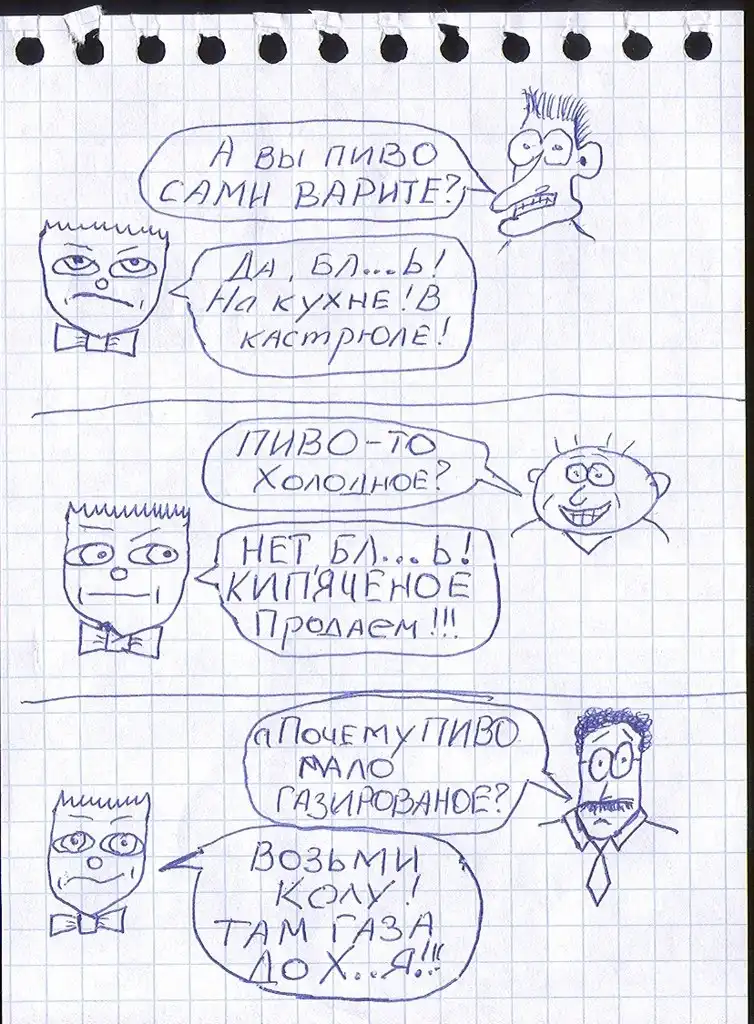 А ВЫ ПИВО
САМИ ВАРИТЕ?
ДА, БЛ...Ь!
НА КУХНЕ! В
КАСТРЮЛЕ!
ПИВО-ТО
ХОЛОДНОЕ?
НЕТ, БЛ...Ь!
КИПЯЧЕНОЕ
ПРОДАЕМ!!!
а ПОЧЕМУ ПИВО
МАЛО
ГАЗИРОВАНОЕ?
ВОЗЬМИ
КОЛУ!
ТАМ ГАЗА
ДО Х...Я!!!